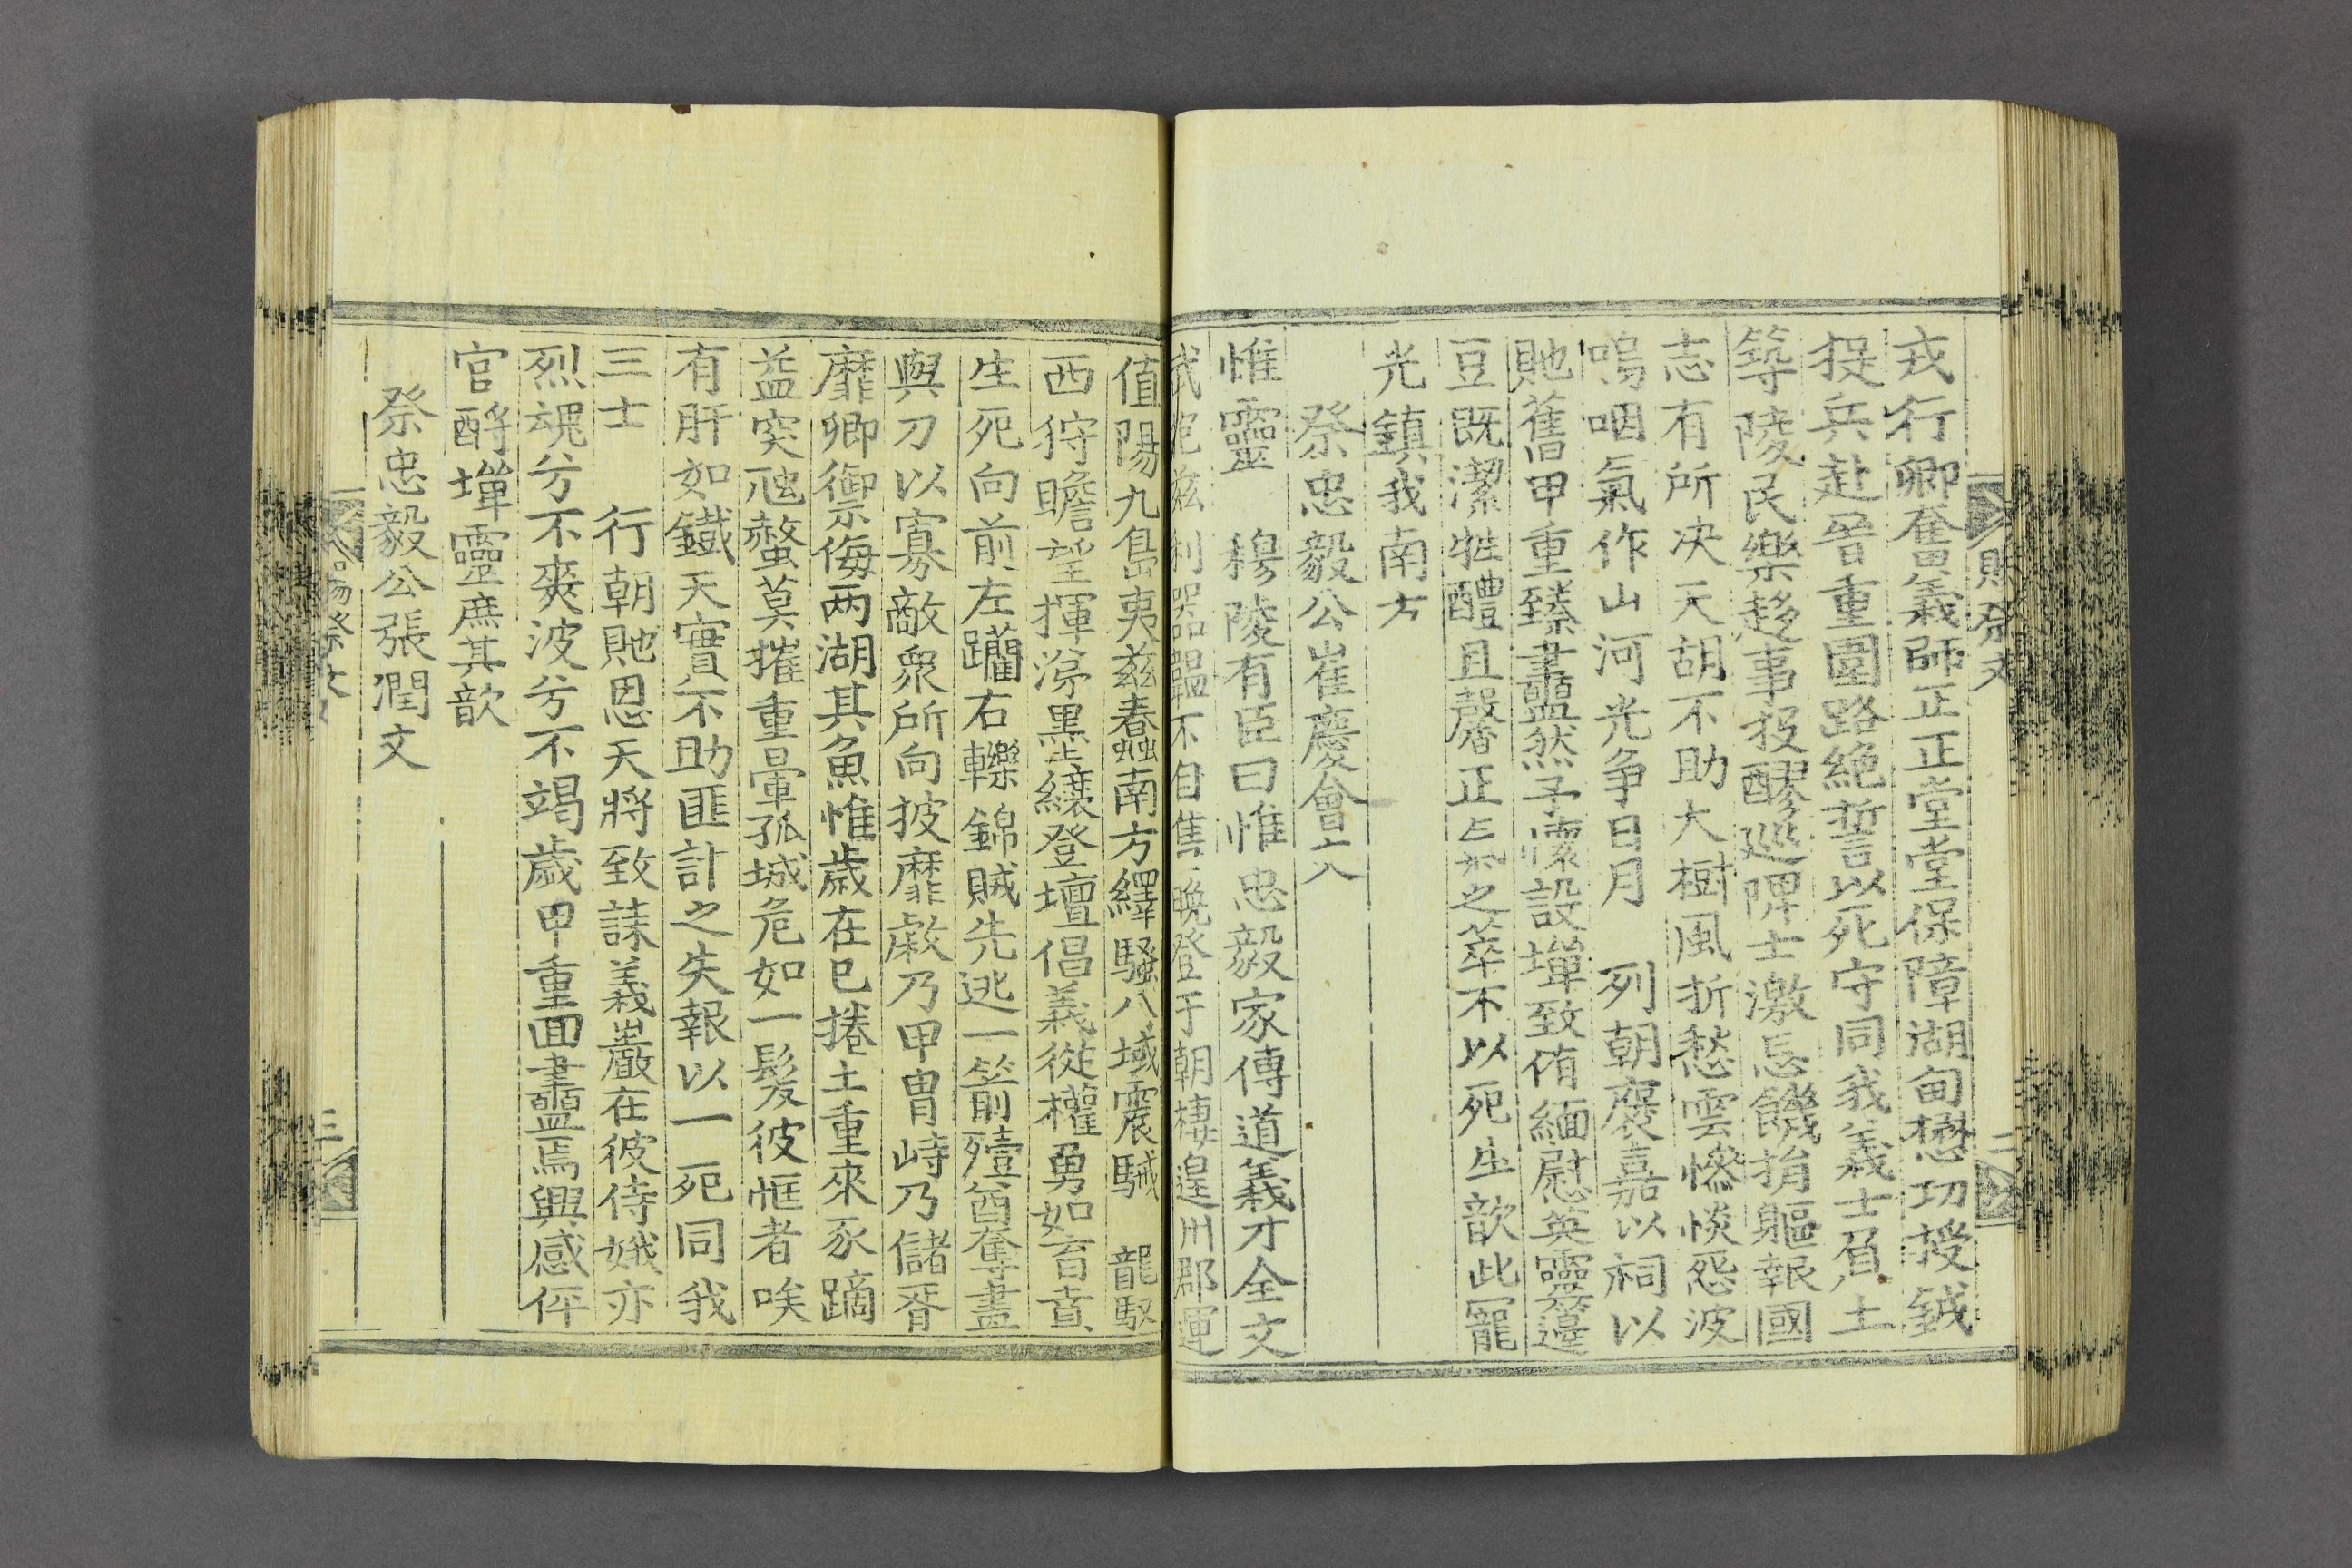 戎行卿奮義師正正堂堂保障湖甸懋功授鉞
捉兵赴晉重圍路絶誓以死守同我義士眉土
築陵民樂趍事投醪廵陴士激忘饑捐軀報國
志有所决天胡不助大樹風折愁雲慘惔怨波
嗚咽氣作山河光争日月 列朝褒嘉以祠以
貤舊甲重臻衋然予懷設墠致侑緬慰英靈籩
豆既潔牲醴且馨正之萃不以死生歆此寵
光鎭我南方
祭忠毅公崔慶會文
惟靈 穆陵有臣曰惟忠毅家傳道義才全文
武抱兹利器韞不自售晚登于朝棲遑州郡運
値陽九島夷兹蠢南方繹騷八域震駴 龍馭
西狩瞻望揮涕墨縗登壇倡義從權勇如育賁
生死向前左躪右轢錦賊先逃一箭殪酋奪畫
與刀以寡敵衆所向披靡敹乃甲冑峙乃儲胥
靡卿禦侮两湖其魚惟歲在巳捲土重來豕蹢
益突虺螫莫摧重暈孤城危如一髮彼恇者唉
有肝如鐵天實不助匪計之失報以一死同我
三士 行朝貤恩天將致誄義巖在彼侍娥亦
烈魂兮不爽波兮不竭歲甲重回衋焉興感伻
官酹墠靈庶其歆
祭忠毅公張潤文
賜祭文
二
三